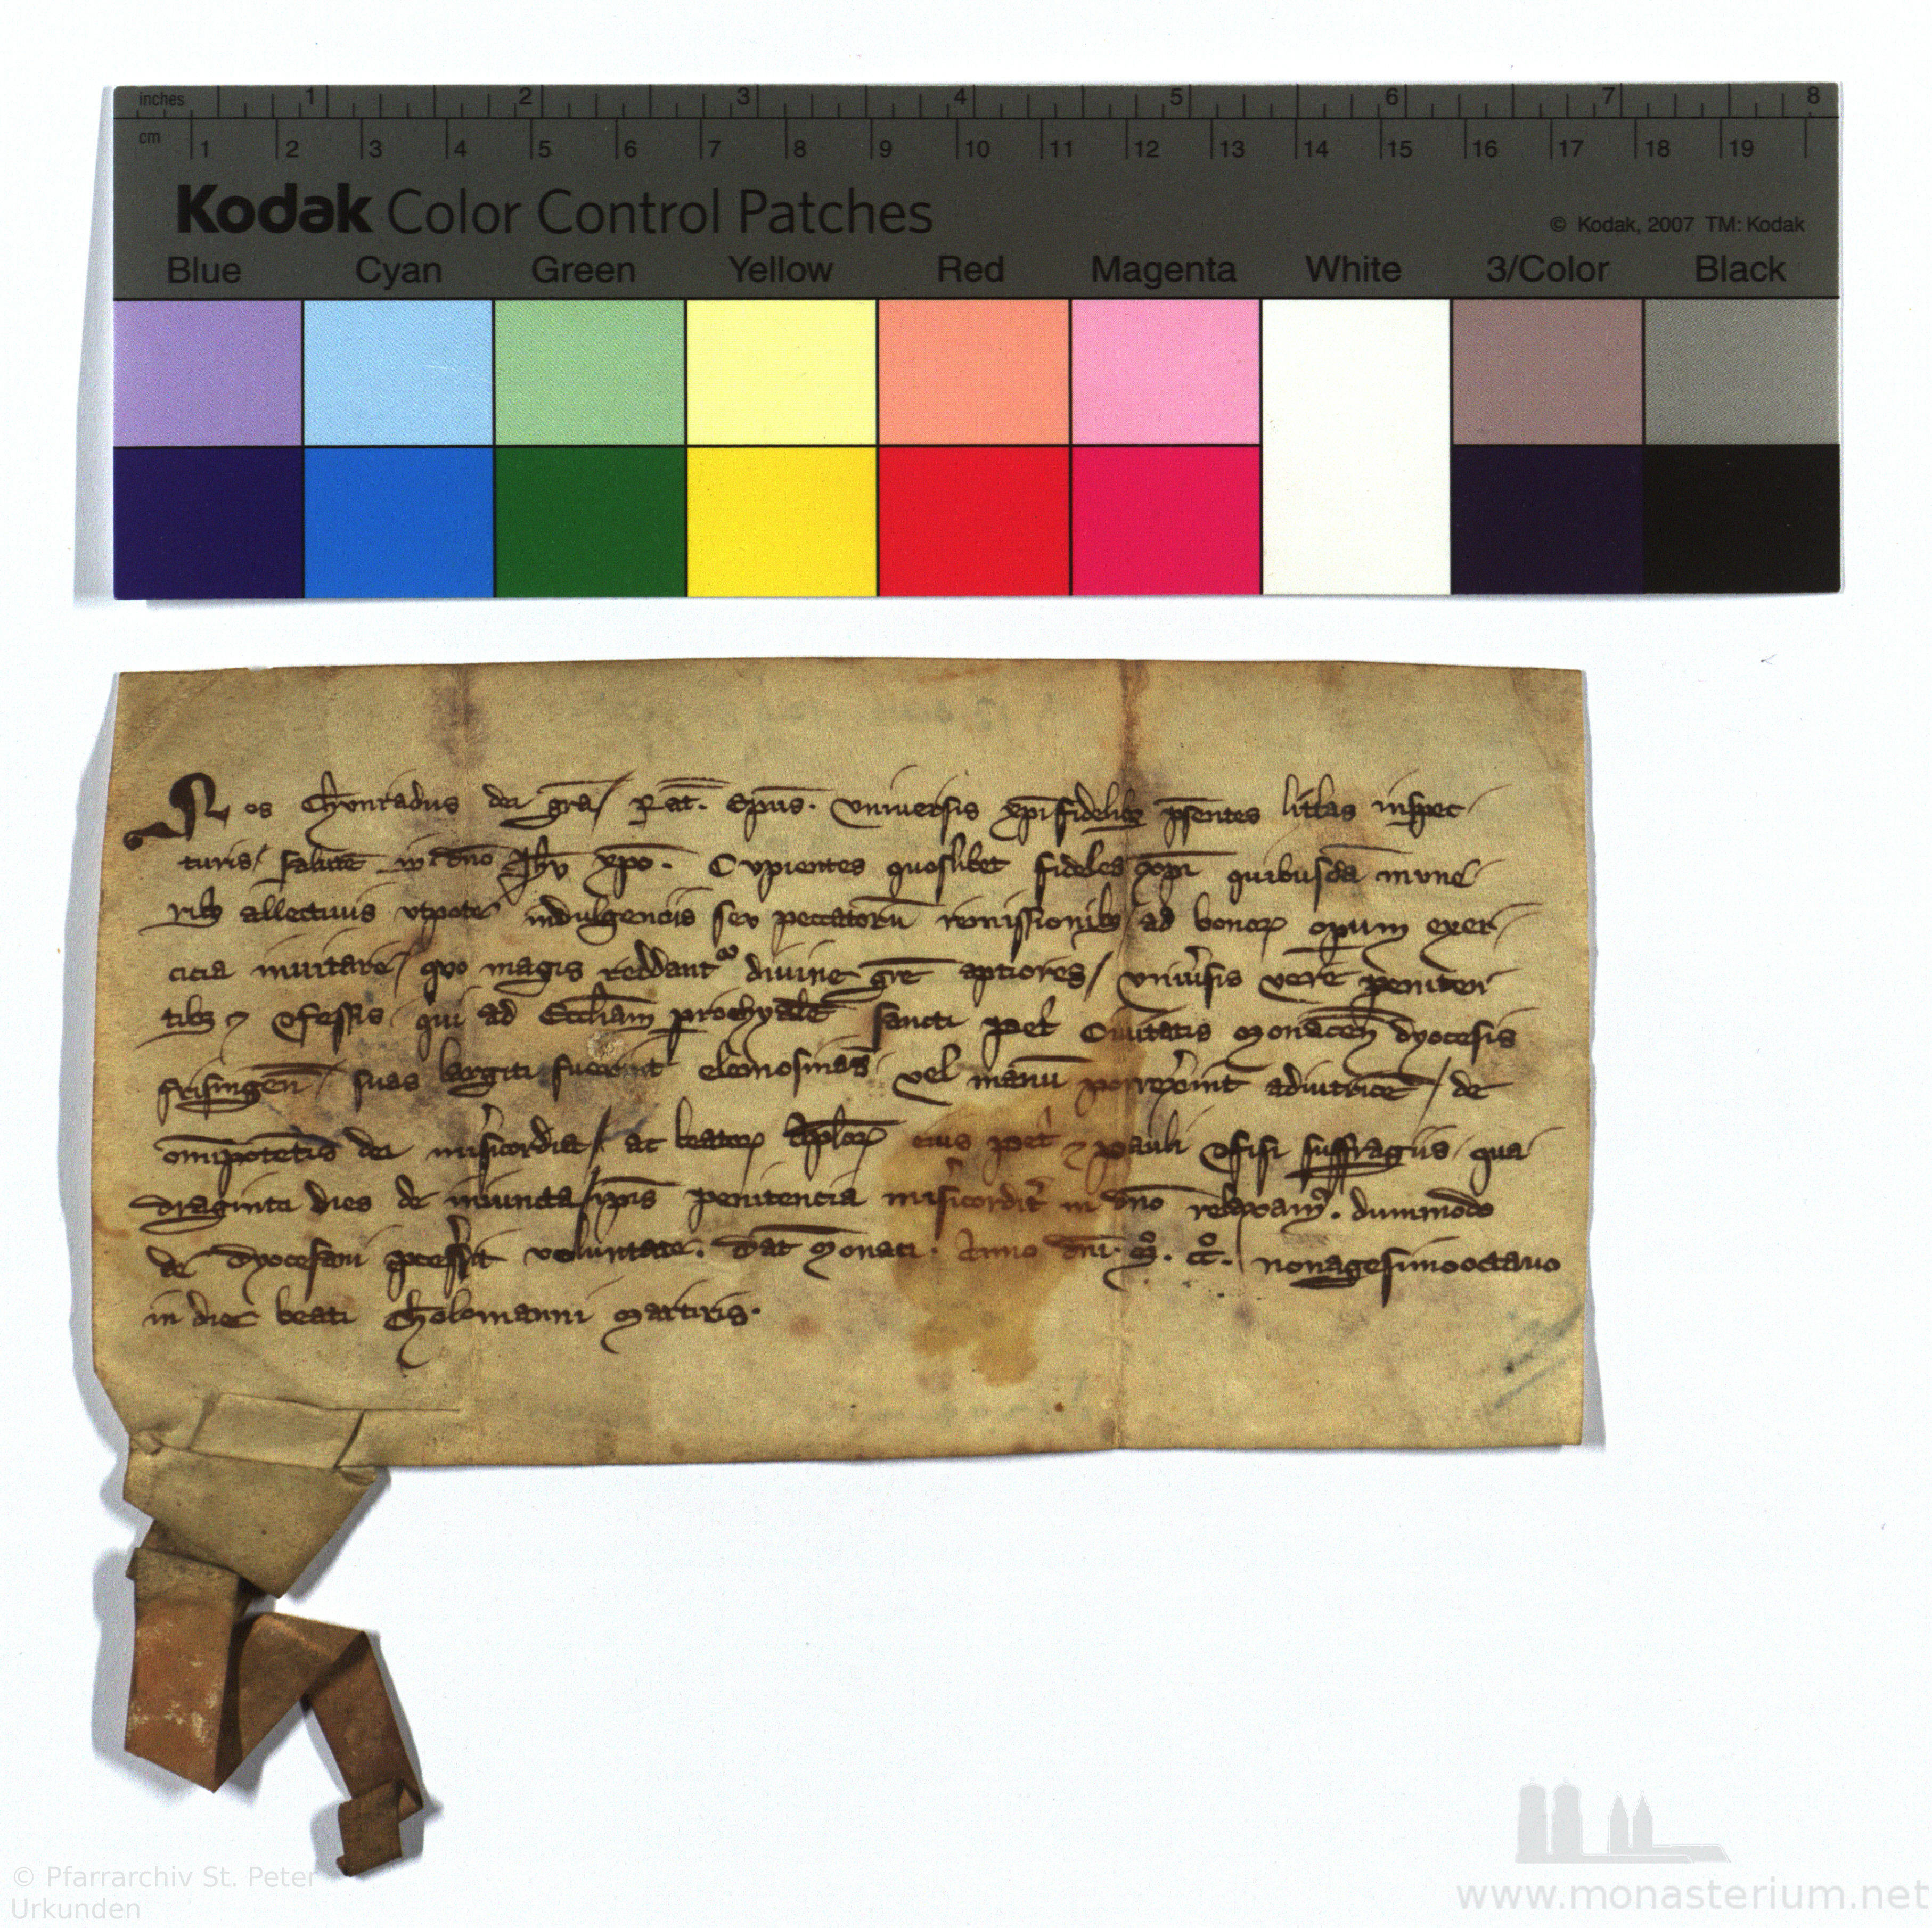 inches 1 2 3 4 5 6 7 8
cm 1 2 3 4 5 6 7 8 9 10 11 12 13 14 15 16 17 18 19
Kodak Color Control Patches
© Kodak, 2007 TM: Kodak
Blue Cyan Green Yellow Red Magenta White 3/Color Black
Nos Chvnradus dei gr̄a / Rat̄. Ep̄us. vniuersis xp̄ifidelibꝫ p̄sentes litt̄as inspec
turis / salutē in dn̄o Jh̄v xp̄o. Cvpientes quoslibet fideles xp̄i quibusdā mvne
ribꝫ allectiuis vtpote indulgenciis sev peccatorū remissionibꝫ / ad bonoꝝ op̄um exer
cicia inuitare / qvo magis reddant᷑ diuine gr̄e aptiores / vniu̓sis vere peniten
tibꝫ ⁊ ꝯfessis qui ad Eccl̄iam parrochyalē sancti Pet̓ Ciuitatis Monacen̄ dyocesis
frisingen̄ / suas largiti fuerint elemosinas vel manū porrexe̓int adiutricē / de
om̄ipotētis dei mis̓icordia / ac beatoꝝ Ap̄loꝝ eius Pet̓ ⁊ pauli ꝯfisi suffragiis qua
draginta dies de iniuncta / ip̄is penitencia mis̓icordit̓ in dn̄o relaxam᷒. dummodo
de dyocesani p̄cess̓it voluntate. Dat̄ Monaci. Anno dn̄i. M̊. cc̊. nonagesimooctauo
in die beati Cholomanni Martiris.
© Pfarrarchiv St. Peter
Urkunden
www.monasterium.net